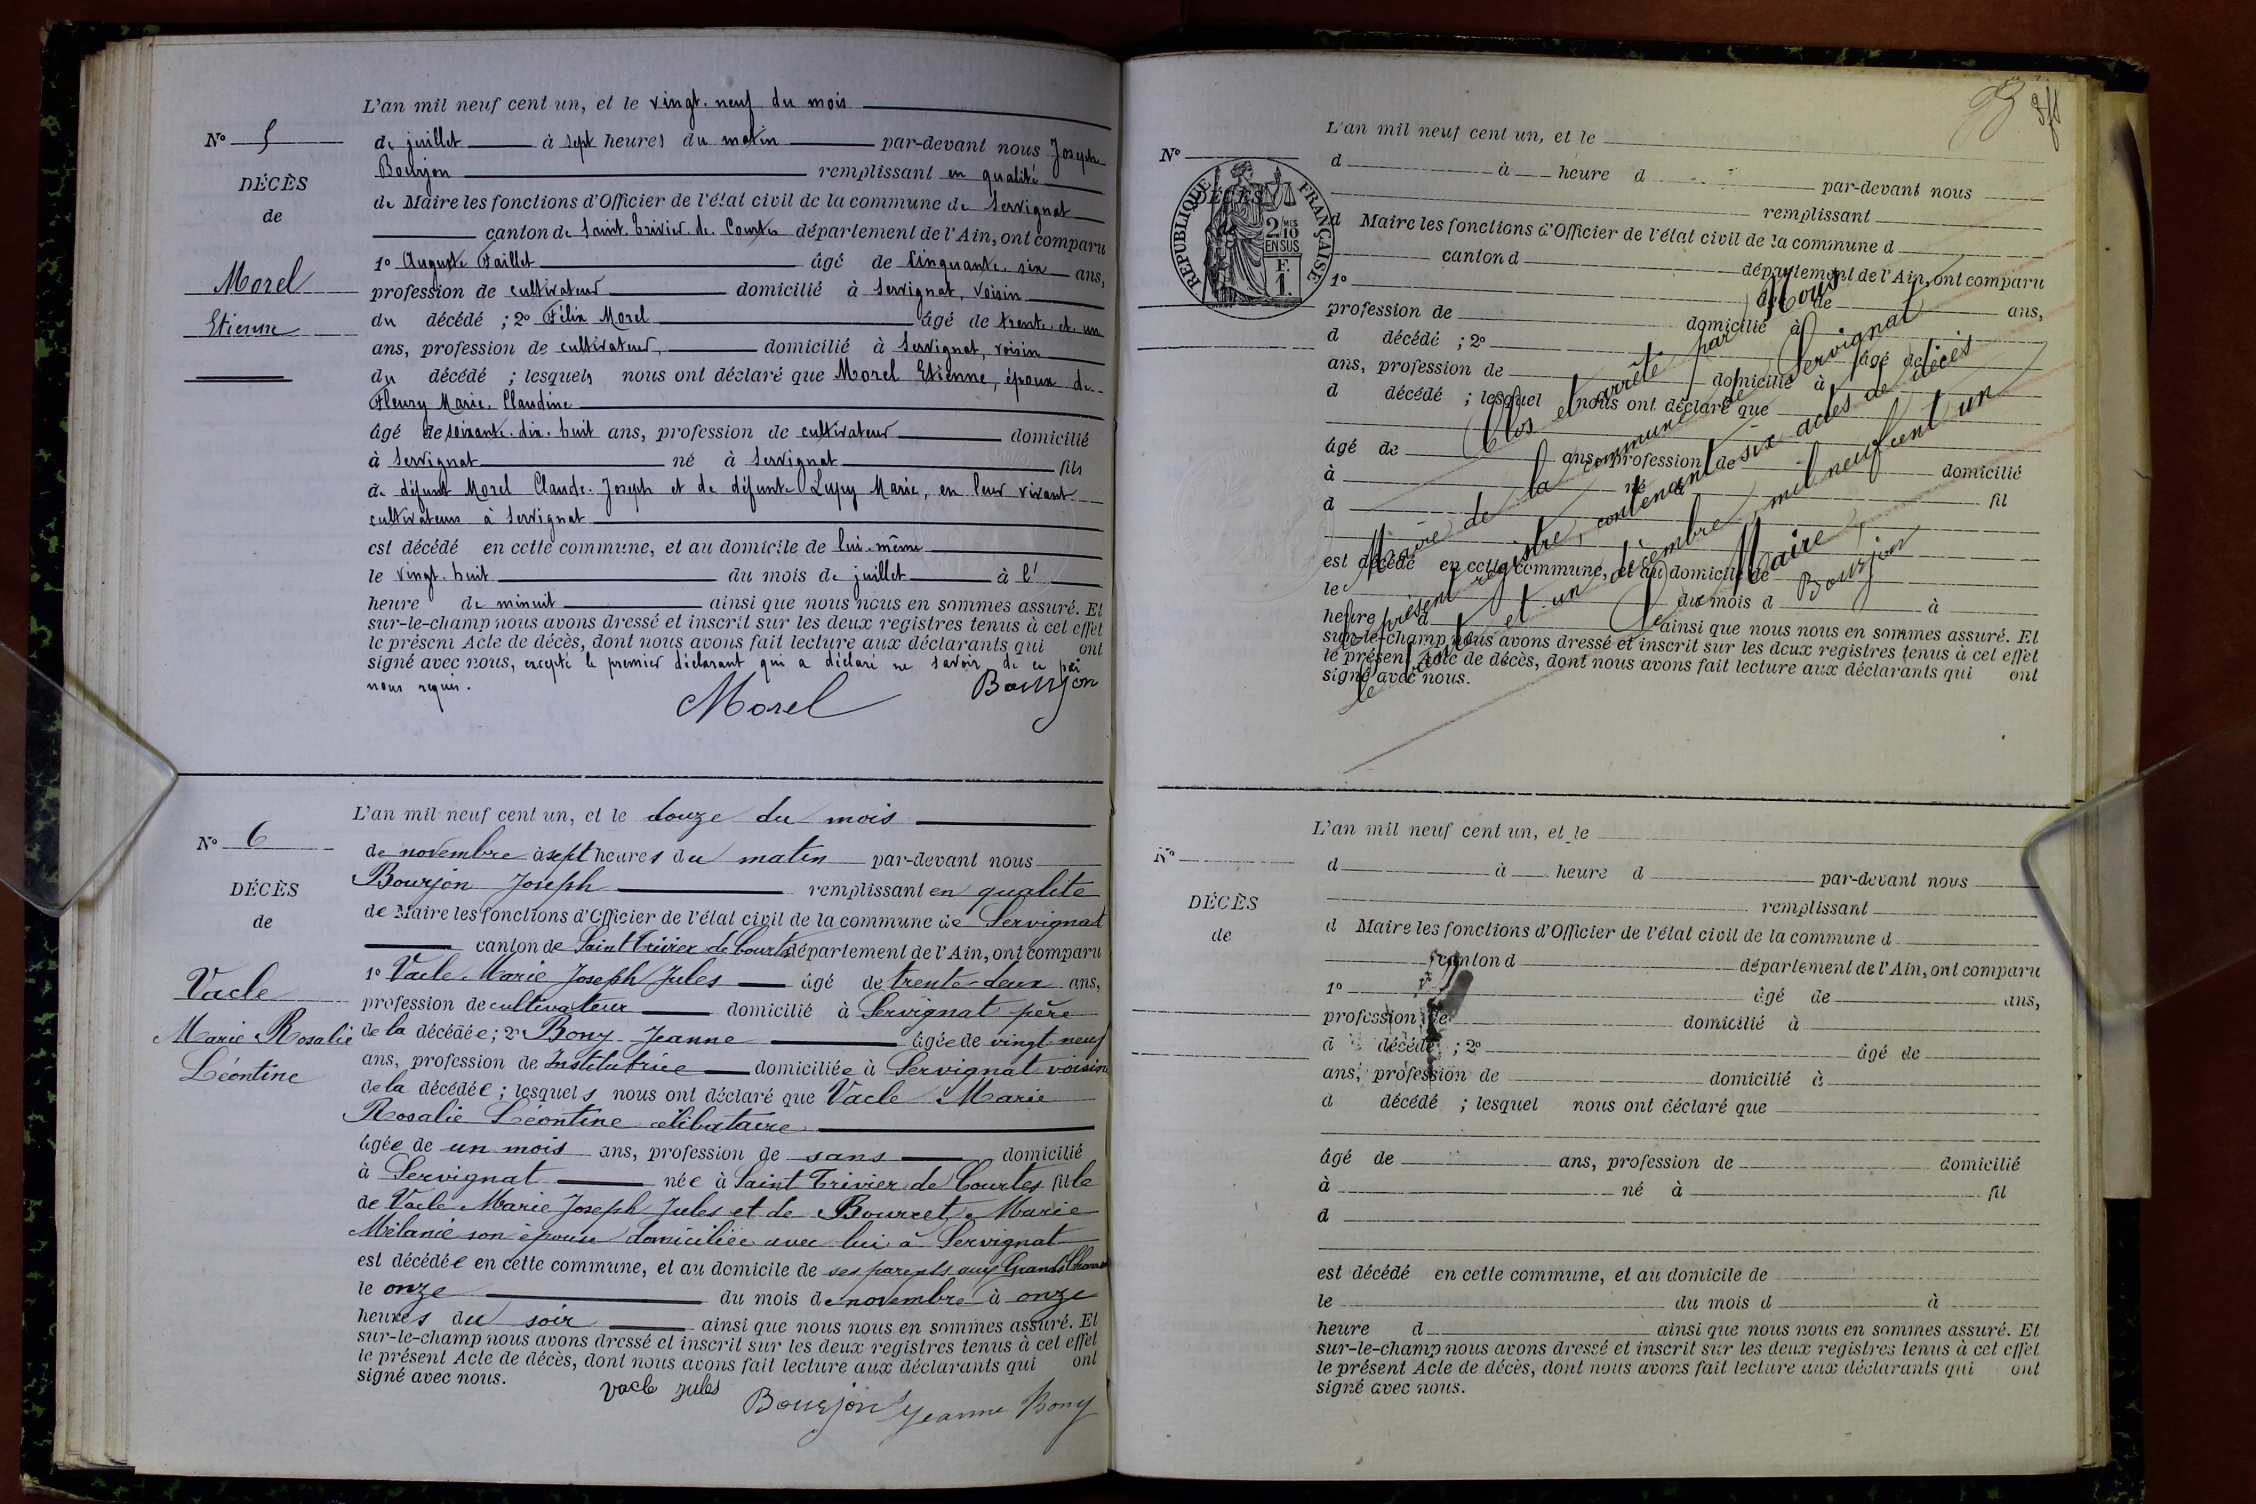 L'an mil neuf cent un, et le vingt-neuf du mois
N° 5
de juillet à sept heures du matin par-devant nous Joseph
Bourjon remplissant en qualité
DÉCÈS
de
Morel
Etienne
de Maire les fonctions d'Officier de l'état civil de la commune de Servignat
canton de Saint-Trivier-de-Courtes département de l'Ain, ont comparu
1° Auguste Faillet âgé de cinquante-six ans,
profession de cultivateur domicilié à Servignat, voisin
du décédé ; 2° Félix Morel âgé de trente-et-un
ans, profession de cultivateur, domicilié à Servignat, voisin
du décédé ; lesquels nous ont déclaré que Morel Etienne, époux de
Fleury Marie-Claudine
âgé de soixante-dix-huit ans, profession de cultivateur domicilié
à Servignat né à Servignat fils
de défunt Morel Claude-Joseph et de défunte Lupy Marie, en leur vivant
cultivateurs à Servignat
est décédé en cette commune, et au domicile de lui-même
le vingt-huit du mois de juillet à l'
heure de minuit ainsi que nous nous en sommes assuré. Et
sur-le-champ nous avons dressé et inscrit sur les deux registres tenus à cet effet
le présent Acte de décès, dont nous avons fait lecture aux déclarants qui ont
signé avec nous, excepté le premier déclarant qui a déclaré ne savoir de ce par
nous requis.
Morel Bourjon
L'an mil neuf cent un, et le douze du mois
N° 6
de novembre à sept heures du matin par-devant nous
Bourjon Joseph remplissant en qualité
DÉCÈS
de
Vacle
Marie Rosalie
Léontine
de Maire les fonctions d'Officier de l'état civil de la commune de Servignat
canton de Saint Trivier de Courtes département de l'Ain, ont comparu
1° Vacle Marie Joseph Jules âgé de trente-deux ans,
profession de cultivateur domicilié à Servignat père
de la décédée ; 2° Bony Jeanne âgée de vingt neuf
ans, profession de Institutrice domiciliée à Servignat voisine
de la décédée ; lesquels nous ont déclaré que Vacle Marie
Rosalie Léontine célibataire
âgée de un mois ans, profession de sans domicilié
à Servignat née à Saint Trivier de Courtes fille
de Vacle Marie Joseph Jules et de Bourcet Marie
Mélanie son épouse domiciliée avec lui à Servignat
est décédée en cette commune, et au domicile de ses parents aux Grands
le onze du mois de novembre à onze
heures du soir ainsi que nous nous en sommes assuré. Et
sur-le-champ nous avons dressé et inscrit sur les deux registres tenus à cet effet
le présent Acte de décès, dont nous avons fait lecture aux déclarants qui ont
signé avec nous.
vacle jules Bourjon Jeanne Bony
L'an mil neuf cent un, et le
N°
d à heure d par-devant nous
remplissant
DÉCÈS
RÉPUBLIQUE FRANÇAISE
2 MES
/10
EN SUS
F.
1.
d Maire les fonctions d'Officier de l'état civil de la commune d
canton d département de l'Ain, ont comparu
1° âgé de ans,
profession de domicilié à
d décédé ; 2° âgé de
ans, profession de domicilié à
d décédé ; lesquel nous ont déclaré que
âgé de ans, profession de domicilié
à né à fil
d
est décédé en cette commune, et au domicile de
le du mois d à
heure d ainsi que nous nous en sommes assuré. Et
sur-le-champ nous avons dressé et inscrit sur les deux registres tenus à cet effet
le présent Acte de décès, dont nous avons fait lecture aux déclarants qui ont
signé avec nous.
Clos et arrêté par Nous
Maire de la commune de Servignat
le présent registre, contenant six actes de décès
le trente et un décembre mil neuf cent un
Le Maire,
Bourjon
L'an mil neuf cent un, et le
N°
d à heure d par-devant nous
remplissant
DÉCÈS
de
d Maire les fonctions d'Officier de l'état civil de la commune d
canton d département de l'Ain, ont comparu
1° âgé de ans,
profession de domicilié à
d décédé ; 2° âgé de
ans, profession de domicilié à
d décédé ; lesquel nous ont déclaré que
âgé de ans, profession de domicilié
à né à fil
d
est décédé en cette commune, et au domicile de
le du mois d à
heure d ainsi que nous nous en sommes assuré. Et
sur-le-champ nous avons dressé et inscrit sur les deux registres tenus à cet effet
le présent Acte de décès, dont nous avons fait lecture aux déclarants qui ont
signé avec nous.